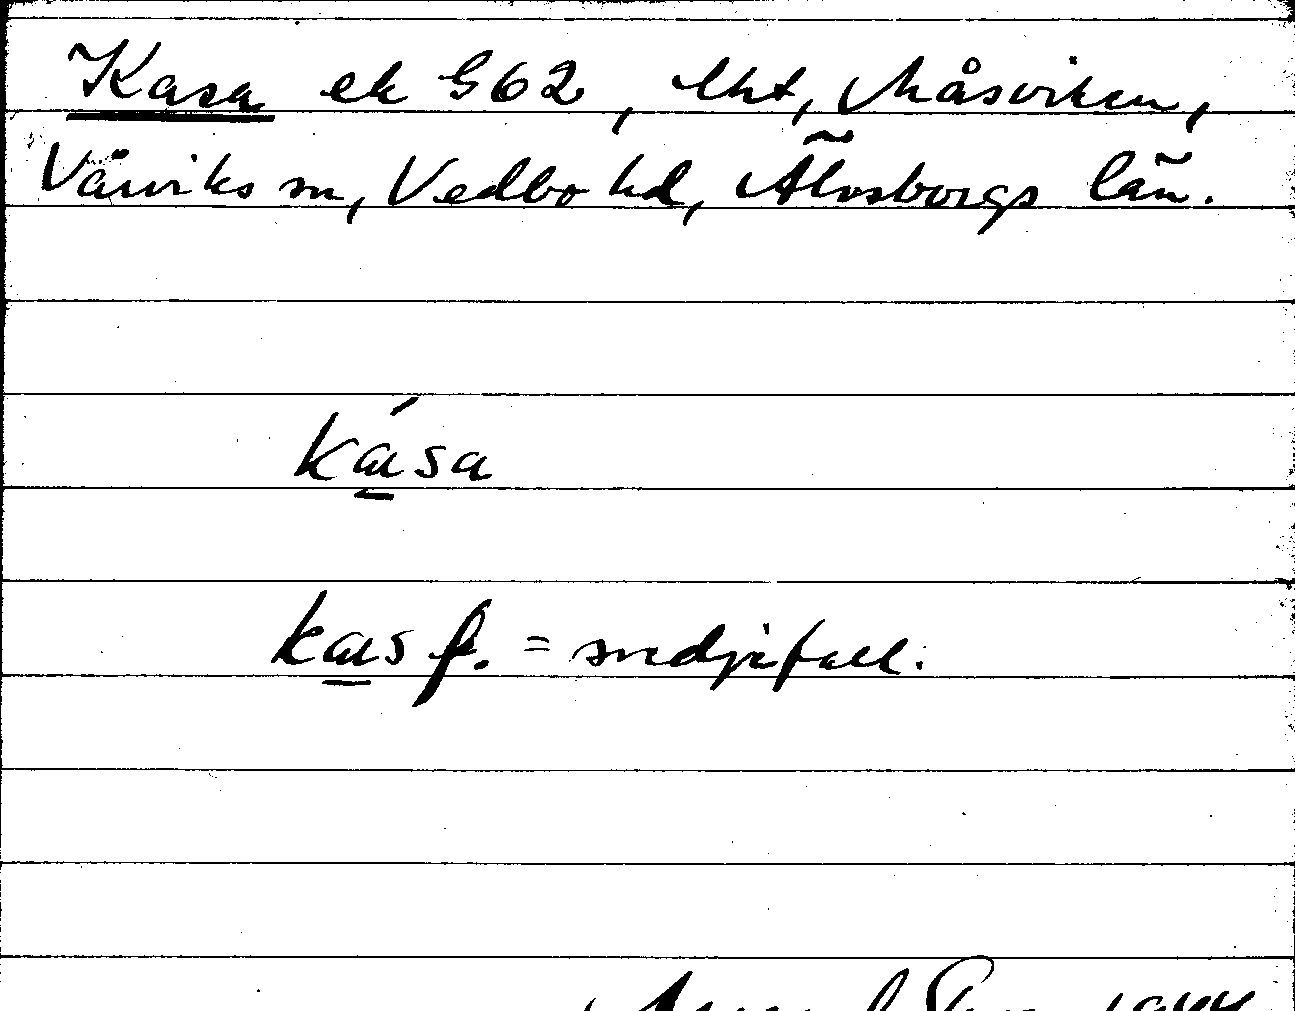 Kasa ek G62, lht, Måsviken,
Vårviks sn, Vedbo hd, Älvsborgs län.
kása
kas f. = svedjefall.